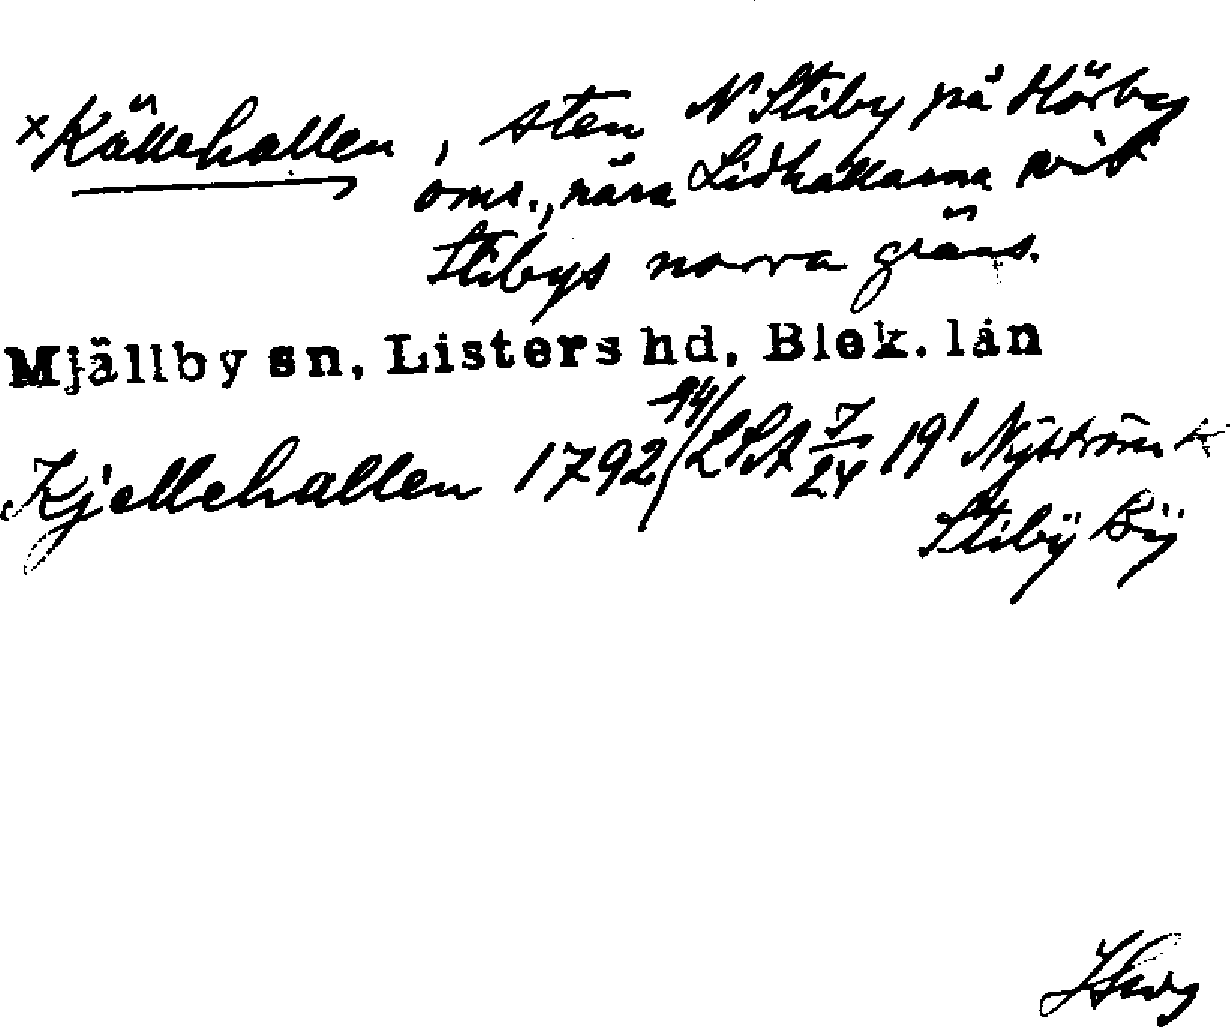 ×Källehallen, sten N Stiby på Hörby
oms., nära Lidhallarna vid
Stibys norra gräns.
Mjällby sn, Listers hd, Blek. län
Kjellehallen 1792 94/LSA I/24 19' Nÿström k
Stibÿ Bÿ